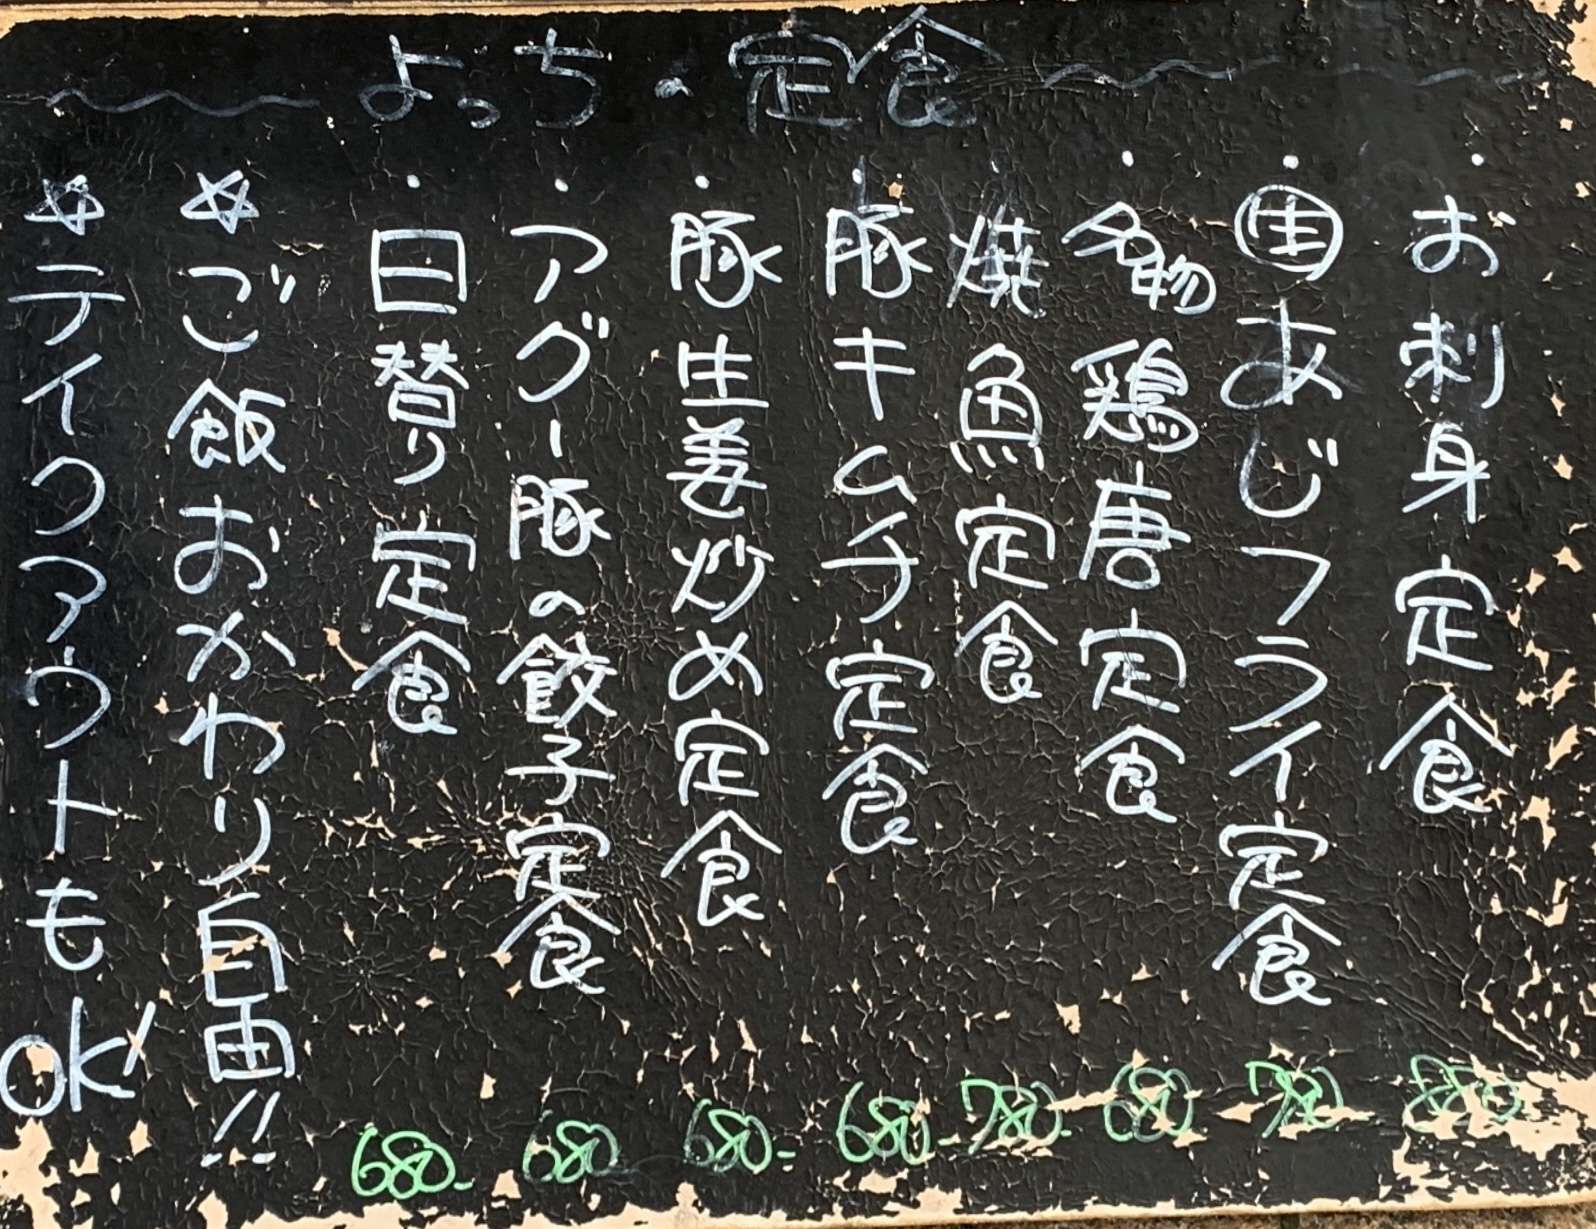 よっちの定食
・お刺身定食 880
・㊤あじフライ定食 780
・名物鶏唐定食 680
・焼魚定食 780-
・豚キムチ定食 680-
・豚生姜炒め定食 680-
・アグー豚の餃子定食 680
・日替り定食 680-
☆ご飯おかわり自由!!
☆テイクアウトもOK!